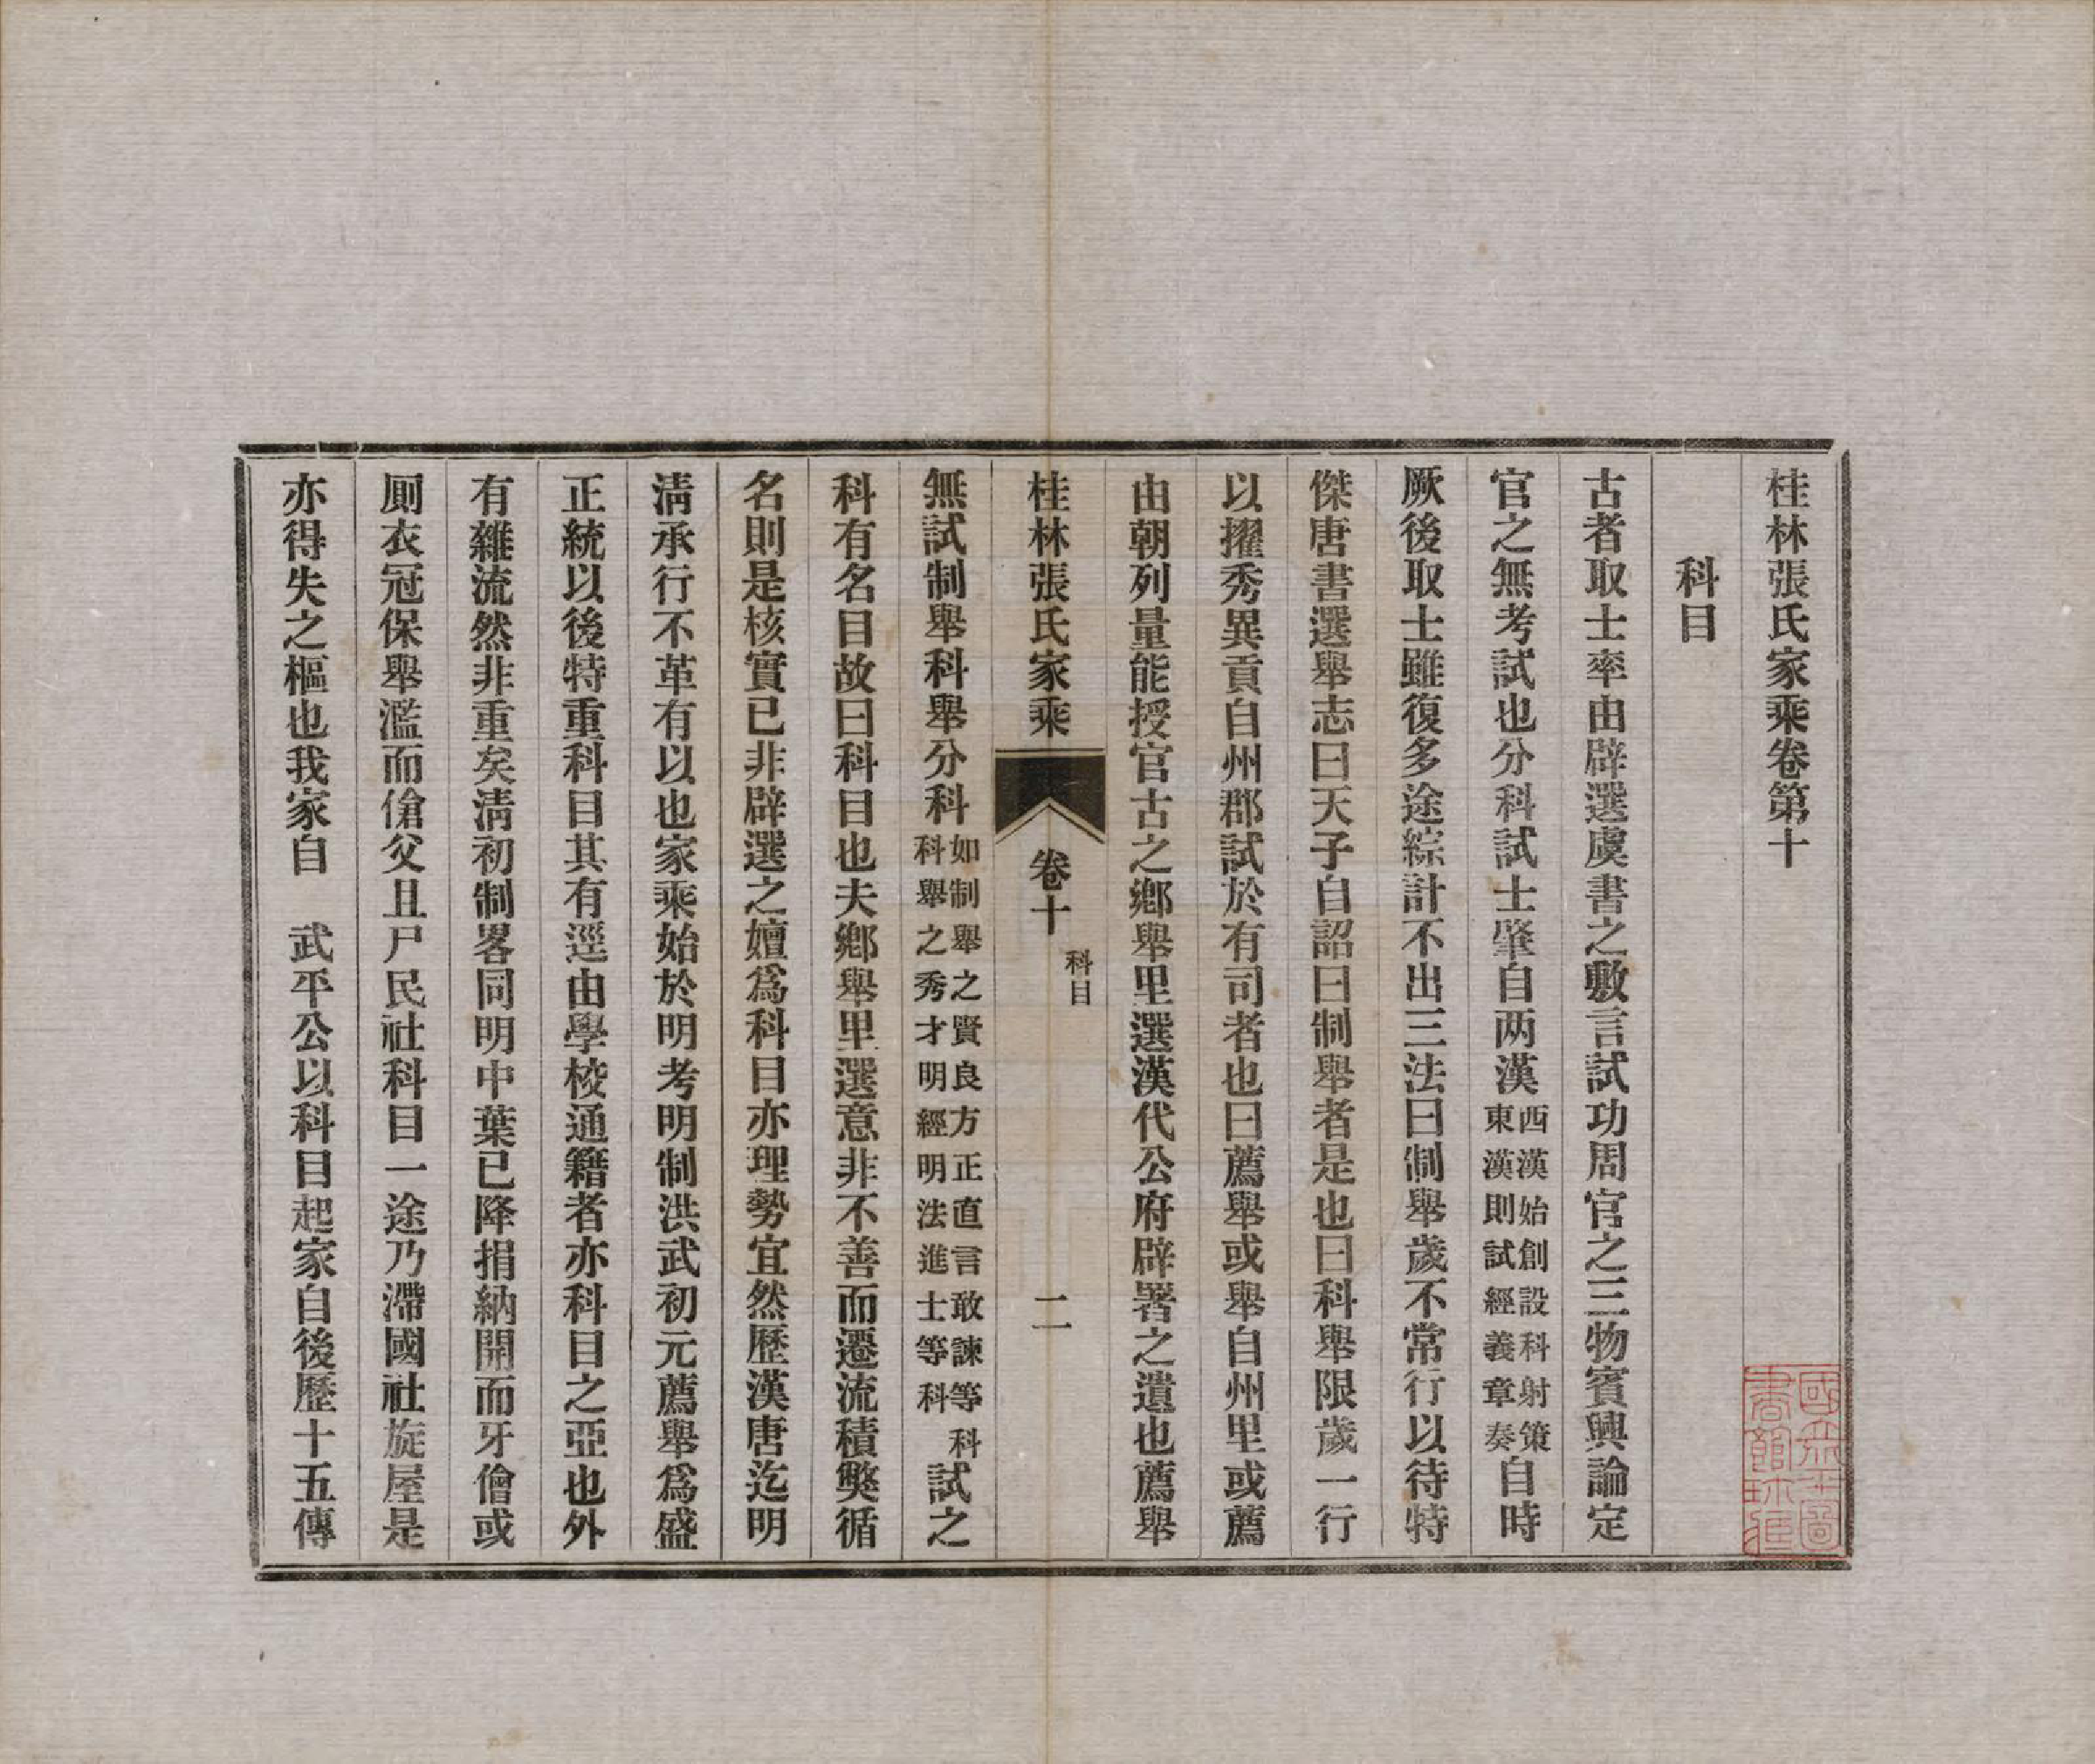 桂林張氏家乘卷第十
科目
古者取士率由辟選虞書之敷言試功周官之三物賓興論定
官之無考試也分科試士肇自两漢西漢始創設科射策東漢則試經義章奏自時
厥後取士雖復多途綜計不出三法曰制舉歲不常行以待特
傑唐書選舉志曰天子自詔曰制舉者是也曰科舉限歲一行
以擢秀異貢自州郡試於有司者也曰薦舉或舉自州里或薦
由朝列量能授官古之鄉舉里選漢代公府辟署之遺也薦舉
桂林張氏家乘 卷十 科目 二
無試制舉科舉分科如制舉之賢良方正直言敢諫等科科舉之秀才明經明法進士等科試之
科有名目故曰科目也夫鄉舉里選意非不善而遷流積獘循
名則是核實已非辟選之嬗爲科目亦理勢宜然歷漢唐迄明
淸承行不革有以也家乘始於明考明制洪武初元薦舉爲盛
正統以後特重科目其有逕由學校通籍者亦科目之亞也外
有雜流然非重矣淸初制畧同明中葉已降捐納開而牙儈或
厠衣冠保舉濫而傖父且尸民社科目一途乃滯國社旋屋是
亦得失之樞也我家自　武平公以科目起家自後歷十五傳
國立北平圖書館珍藏